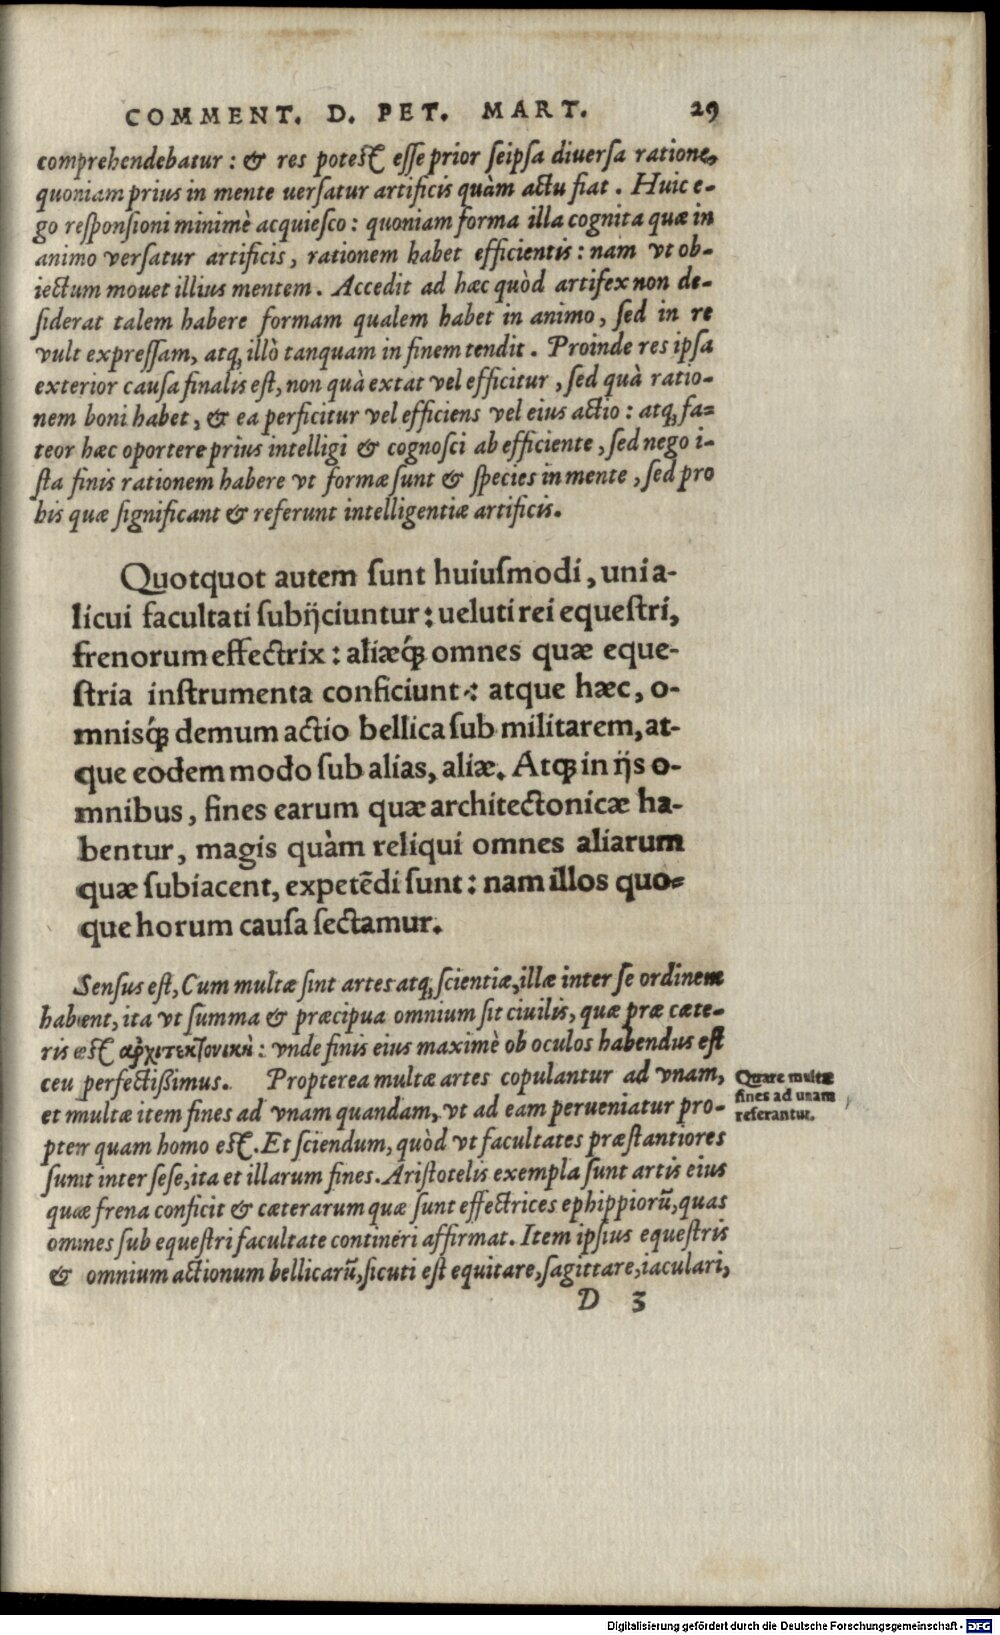 COMMENT. D. PET. MART. 29
comprehendebatur: & res potest esse prior seipsa diuersa ratione,
quoniam prius in mente uersatur artificis quàm actu fiat. Huic e-
go responsioni minimè acquiesco: quoniam forma illa cognita quæ in
animo versatur artificis, rationem habet efficientis: nam vt ob-
iectum mouet illius mentem. Accedit ad hæc quòd artifex non de-
siderat talem habere formam qualem habet in animo, sed in re
vult expressam, atq; illò tanquam in finem tendit. Proinde res ipsa
exterior causa finalis est, non quà extat vel efficitur, sed quà ratio-
nem boni habet, & ea perficitur vel efficiens vel eius actio: atq; fa-
teor hæc oportere prius intelligi & cognosci ab efficiente, sed nego i-
sta finis rationem habere vt formæ sunt & species in mente, sed pro
his quæ significant & referunt intelligentiæ artificis.
Quotquot autem sunt huiusmodi, uni a-
licui facultati subijciuntur: ueluti rei equestri,
frenorum effectrix: aliæq́; omnes quæ eque-
stria instrumenta conficiunt: atque hæc, o-
mnisq́; demum actio bellica sub militarem, at-
que eodem modo sub alias, aliæ. Atq; in ijs o-
mnibus, fines earum quæ architectonicæ ha-
bentur, magis quàm reliqui omnes aliarum
quæ subiacent, expetēdi sunt: nam illos quo-
que horum causa sectamur.
Sensus est, Cum multæ sint artes atq; scientiæ, illæ inter se ordinem
habent, ita vt summa & præcipua omnium sit ciuilis, quæ præ cæte-
ris est ἀρχιτεκτονικὴ: vnde finis eius maximè ob oculos habendus est
ceu perfectißimus. Propterea multæ artes copulantur ad vnam,
et multæ item fines ad vnam quandam, vt ad eam perueniatur pro-
pter quam homo est. Et sciendum, quòd vt facultates præstantiores
sunt inter sese, ita et illarum fines. Aristotelis exempla sunt artis eius
quæ frena conficit & cæterarum quæ sunt effectrices ephippiorū, quas
omnes sub equestri facultate contineri affirmat. Item ipsius equestris
& omnium actionum bellicarū, sicuti est equitare, sagittare, iaculari,
Quare multæ
fines ad unam
referantur.
D 3
Digitalisierung gefördert durch die Deutsche Forschungsgemeinschaft - DFG